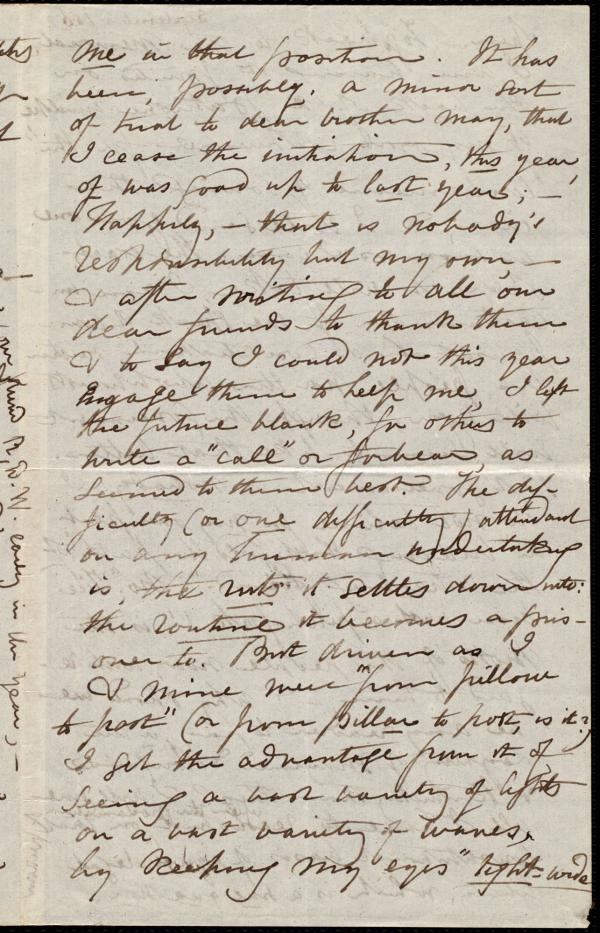 me in that position. It has
been, possibly, a minor sort
of trial to dear brother May, that
I cease the initiation, this year,
of was good up to last year; —
Happily, — that is nobody's
responsibility but my own, —
& after writing to all our
dear friends to thank them
& to say I could not this year
engage them to help me, I left
the future blank, for others to
write a "call" or forbear, as
seemed to them best. The dif-
ficulty (or one difficulty) attendant
on any human undertaking
is the ruts it settles down into:
the routine it becomes a pris-
oner to. But driven as I
& mine were "from pillow
to post" (or from Billar to post, is it?)
I get the advantage from it of
seeing a vast variety of lights
on a vast variety of waves,
by keeping my eyes "tight-wide
R. D. W. early in the year, —